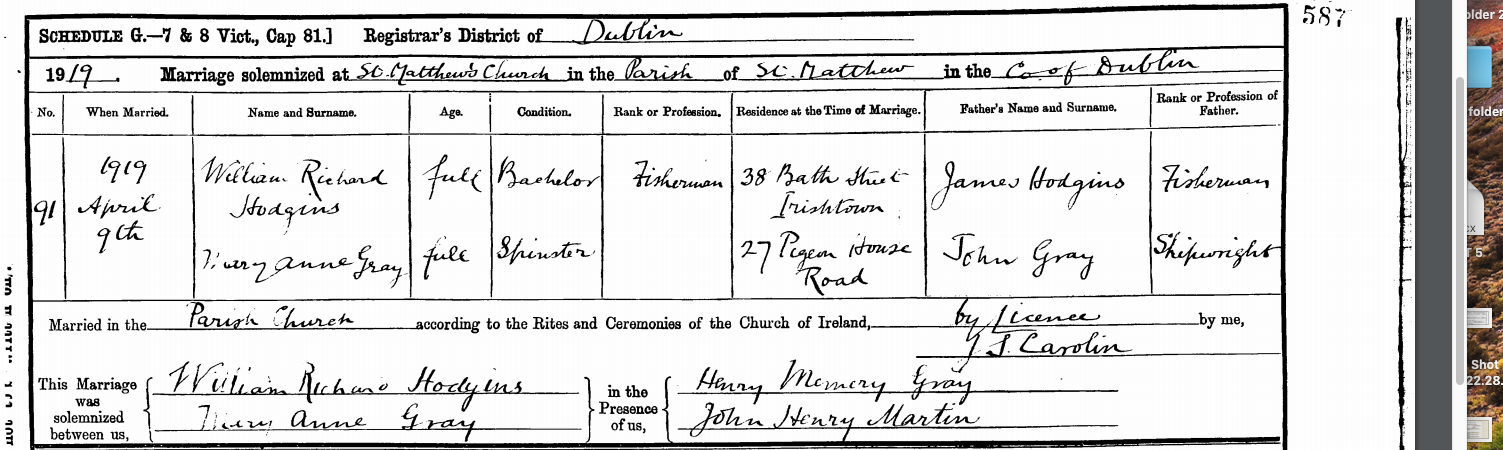 587
SCHEDULE G.—7 & 8 Vict., Cap 81.] Registrar's District of Dublin
1919. Marriage solemnized at St. Matthew's Church in the Parish of St. Matthew in the Co of Dublin
No. When Married. Name and Surname. Age. Condition. Rank or Profession. Residence at the Time of Marriage. Father's Name and Surname. Rank or Profession of Father.
91 1919 April 9th
William Richard Hodgins full Bachelor Fisherman 38 Bath Street Irishtown James Hodgins Fisherman
Mary Anne Gray full Spinster 27 Pigeon House Road John Gray Shipwright
Married in the Parish Church according to the Rites and Ceremonies of the Church of Ireland, by Licence by me,
J. S. Carolin
This Marriage was solemnized between us, William Richard Hodgins
Mary Anne Gray
in the Presence of us, Henry Memery Gray
John Henry Martin
older 2
folder
cx
5.
Shot
22.28.